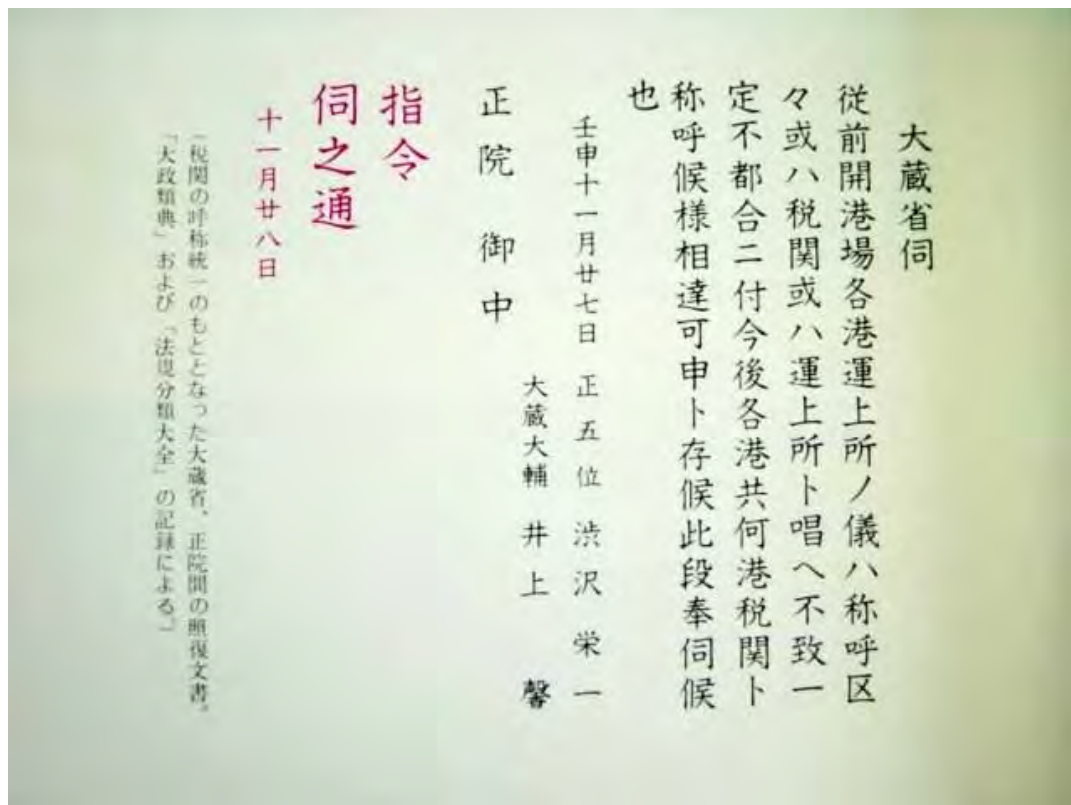 大蔵省伺
従前開港場各港運上所ノ儀ハ称呼区
々或ハ税関或ハ運上所ト唱へ不致一
定不都合ニ付今後各港共何港税関ト
称呼候様相達可申ト存候此段奉伺候
也
壬申十一月廿七日 正五位 渋沢栄一
大蔵大輔 井上 馨
正院 御中
指令
伺之通
十一月廿八日
(税関の呼称統一のもととなった大蔵省、正院間の照復文書。
「太政類典」および「法規分類大全」の記録による。)